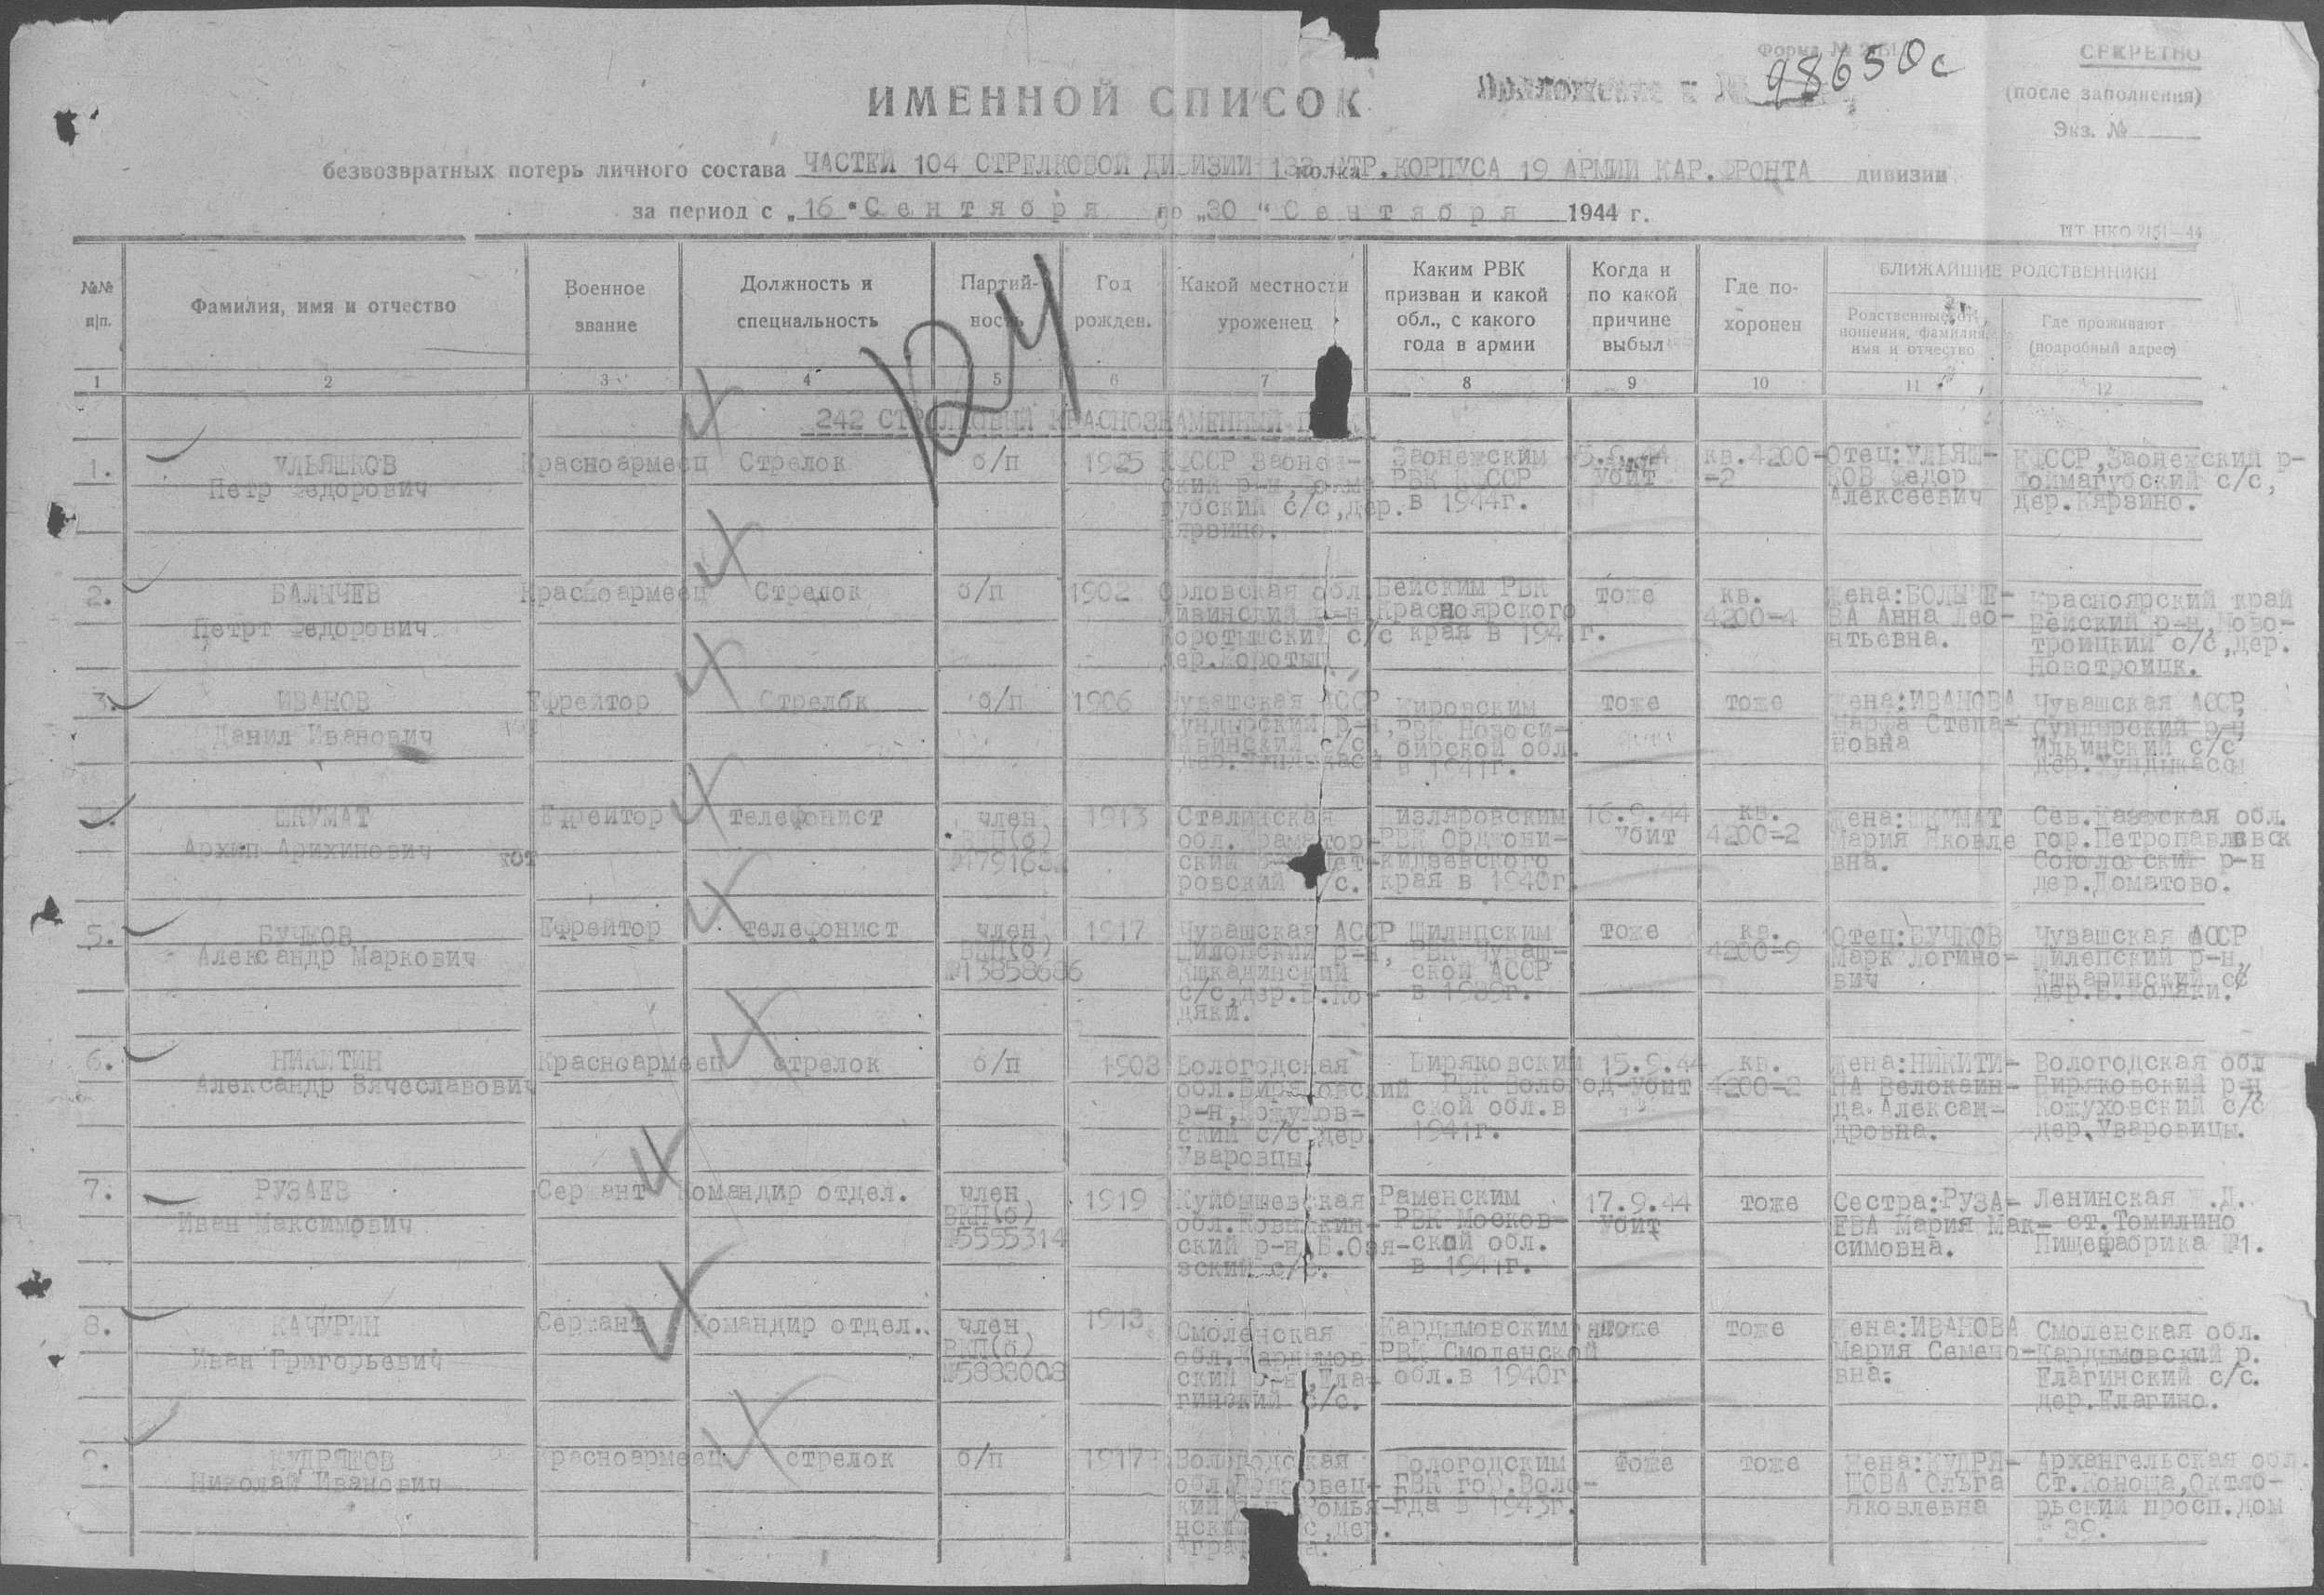 Форма № 2151
СЕКРЕТНО
(после заполнения)
Экз. №
Приложение к № 98650с
ИМЕННОЙ СПИСОК
безвозвратных потерь личного состава ЧАСТЕЙ 104 СТРЕЛКОВОЙ ДИВИЗИИ СТР.КОРПУСА 19 АРМИИ КАР.ФРОНТА дивизии
за период с „16" Сентября по „30" Сентября 1944 г.
№№ п|п.
Фамилия, имя и отчество
Военное звание
Должность и специальность
Партий-ность
Год рожден.
Какой местности уроженец
Каким РВК призван и какой обл., с какого года в армии
Когда и по какой причине выбыл
Где по-хоронен
БЛИЖАЙШИЕ РОДСТВЕННИКИ
Родственные от-ношения, фамилия, имя и отчество
Где проживают (подробный адрес)
1 2 3 4 5 6 7 8 9 10 11 12
242 СТРЕЛКОВЫЙ КРАСНОЗНАМЕННЫЙ
1.
УЛЬЯШКОВ
Петр Федорович
Красноармеец
Стрелок
б/п
1925
КФССР Заонеж-
ский р-н,
губский с/с,дер.
Кярзино.
Заонежским
РВК КФССР
в 1944г.
Убит
кв.4200-
-2
Отец:УЛЬЯШ-
КОВ Федор
Алексеевич
КФССР,Заонежский р-
Фоймагубский с/с,
дер.Кярзино.
2.
БАЛЫЧЕВ
Петрт Федорович
Красноармеец
Стрелок
б/п
1902
Орловская обл
Ливинский р-н
Коротышский с/с
дер.Коротыш
Бейским РВК
Красноярского
края в 194 г.
тоже
кв.
4200-4
Жена:БОЛЫЧЕ-
ВА Анна Лео-
нтьевна.
Красноярский край
Бейский р-н,Ново-
троицкий с/с,дер.
Новотроицк.
3.
ИВАНОВ
Данил Иванович
Ефрейтор
Стрелок
б/п
1906
Чувашская АССР
Сундырский р-н,
Ильинский с/с,
Кировским
РВК Новоси-
бирской обл.
в 1941г.
тоже
тоже
Жена:ИВАНОВА
Марфа Степа-
новна
Чувашская АССР,
Сундырский р-н
Ильинский с/с
4.
ШКУМАТ
Архип Арихинович
тот
Ефрейтор
телефонист
член
ВКП(б)
1913
Сталинская
обл.Краматор-
ский
ровский с/с.
Кизляровским
РВК Орджони-
кидзевского
края в 1940г.
16.9.44
Убит
кв.
4200-2
Жена:ШКУМАТ
Мария Яковле
вна.
Сев.Казахская обл.
гор.Петропавловск
Соколовский р-н
дер.Доматово.
5.
БУЧКОВ
Александр Маркович
Ефрейтор
телефонист
член
ВКП(б)
№13858686
1917
Чувашская АССР
р-н,
с/с,дер.Б.Ко-
дяки.
РВК Чуваш-
ской АССР
в 1939г.
тоже
кв.
4200-9
Отец:БУЧКОВ
Марк Логино-
вич
Чувашская АССР
Шилепский р-н,
Яшкаринский с/с
6.
НИКИТИН
Александр Вячеславович
Красноармеец
стрелок
б/п
1908
Вологодская
обл.Биряковский
р-н,Кожухов-
ский с/с,дер
Уваровцы.
Биряковский
РВК Вологод-
ской обл.в
1941г.
15.9.44
Убит
кв.
4200-2
Жена:НИКИТИ-
НА Велокзин-
да Алексан-
дровна.
Вологодская обл
Биряковский р-н
Кожуховский с/с
дер.Уваровицы.
7.
РУЗАЕВ
Иван Максимович
Сержант
Командир отдел.
член
ВКП(б)
№5555314
1919
Куйбышевская
обл.Ковылкин-
ский р-н,Б.Озя-
зский с/с.
Раменским
РВК Москов-
ской обл.
в 1941г.
17.9.44
Убит
тоже
Сестра:РУЗА-
ЕВА Мария Мак-
симовна.
Ленинская Ж.Д.
ст.Томилино
Пищефабрика №1.
8.
КАЧУРИН
Иван Григорьевич
Сержант
Командир отдел..
член
ВКП(б)
№5883008
1913
Смоленская
обл.Кардымов
ский р-н,Ела-
гинский с/с.
Кардымовским
РВК Смоленской
обл.в 1940г
тоже
тоже
Жена:ИВАНОВА
Мария Семено-
вна.
Смоленская обл.
Кардымовский р.
Елагинский с/с.
дер.Елагино.
9.
КУДРЯШОВ
Николай Иванович
Красноармеец
стрелок
б/п
1917
Вологодская
обл.Грязовец-
кий
с,дер.
Вологодским
ГВК гор.Воло-
гда в 1943г.
тоже
тоже
Жена:КУДРЯ-
ШОВА Ольга
Яковлевна
Архангельская обл.
Ст.Коноша,Октяб-
рьский просп.дом
№ 39.